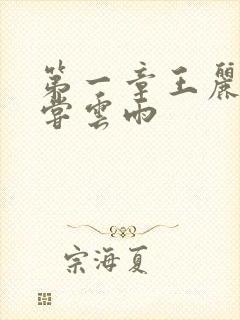 第一章王麗
嘗雲雨
宗海夏